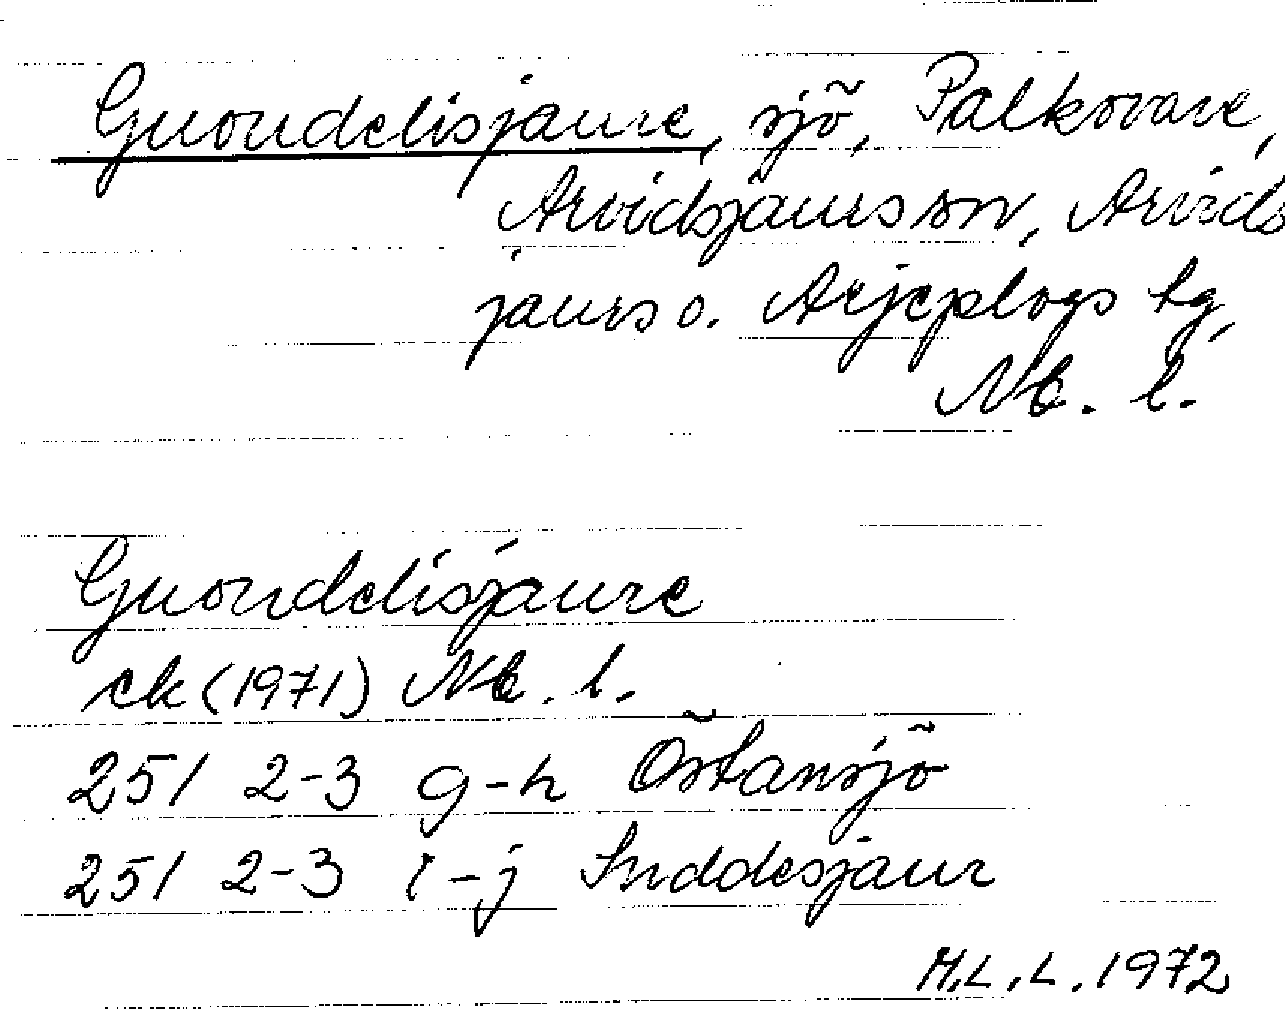 Guoudelisjaure, sjö, Palkovare,
Arvidsjaurs sn, Arvids
jaurs o. Arjeplogs tg,
Nb. l.
Guoudelisjaure
ek (1971) Nb. l.
251 2-3 g-h Östansjö
251 2-3 i-j Suddesjaur
M.L.L. 1972